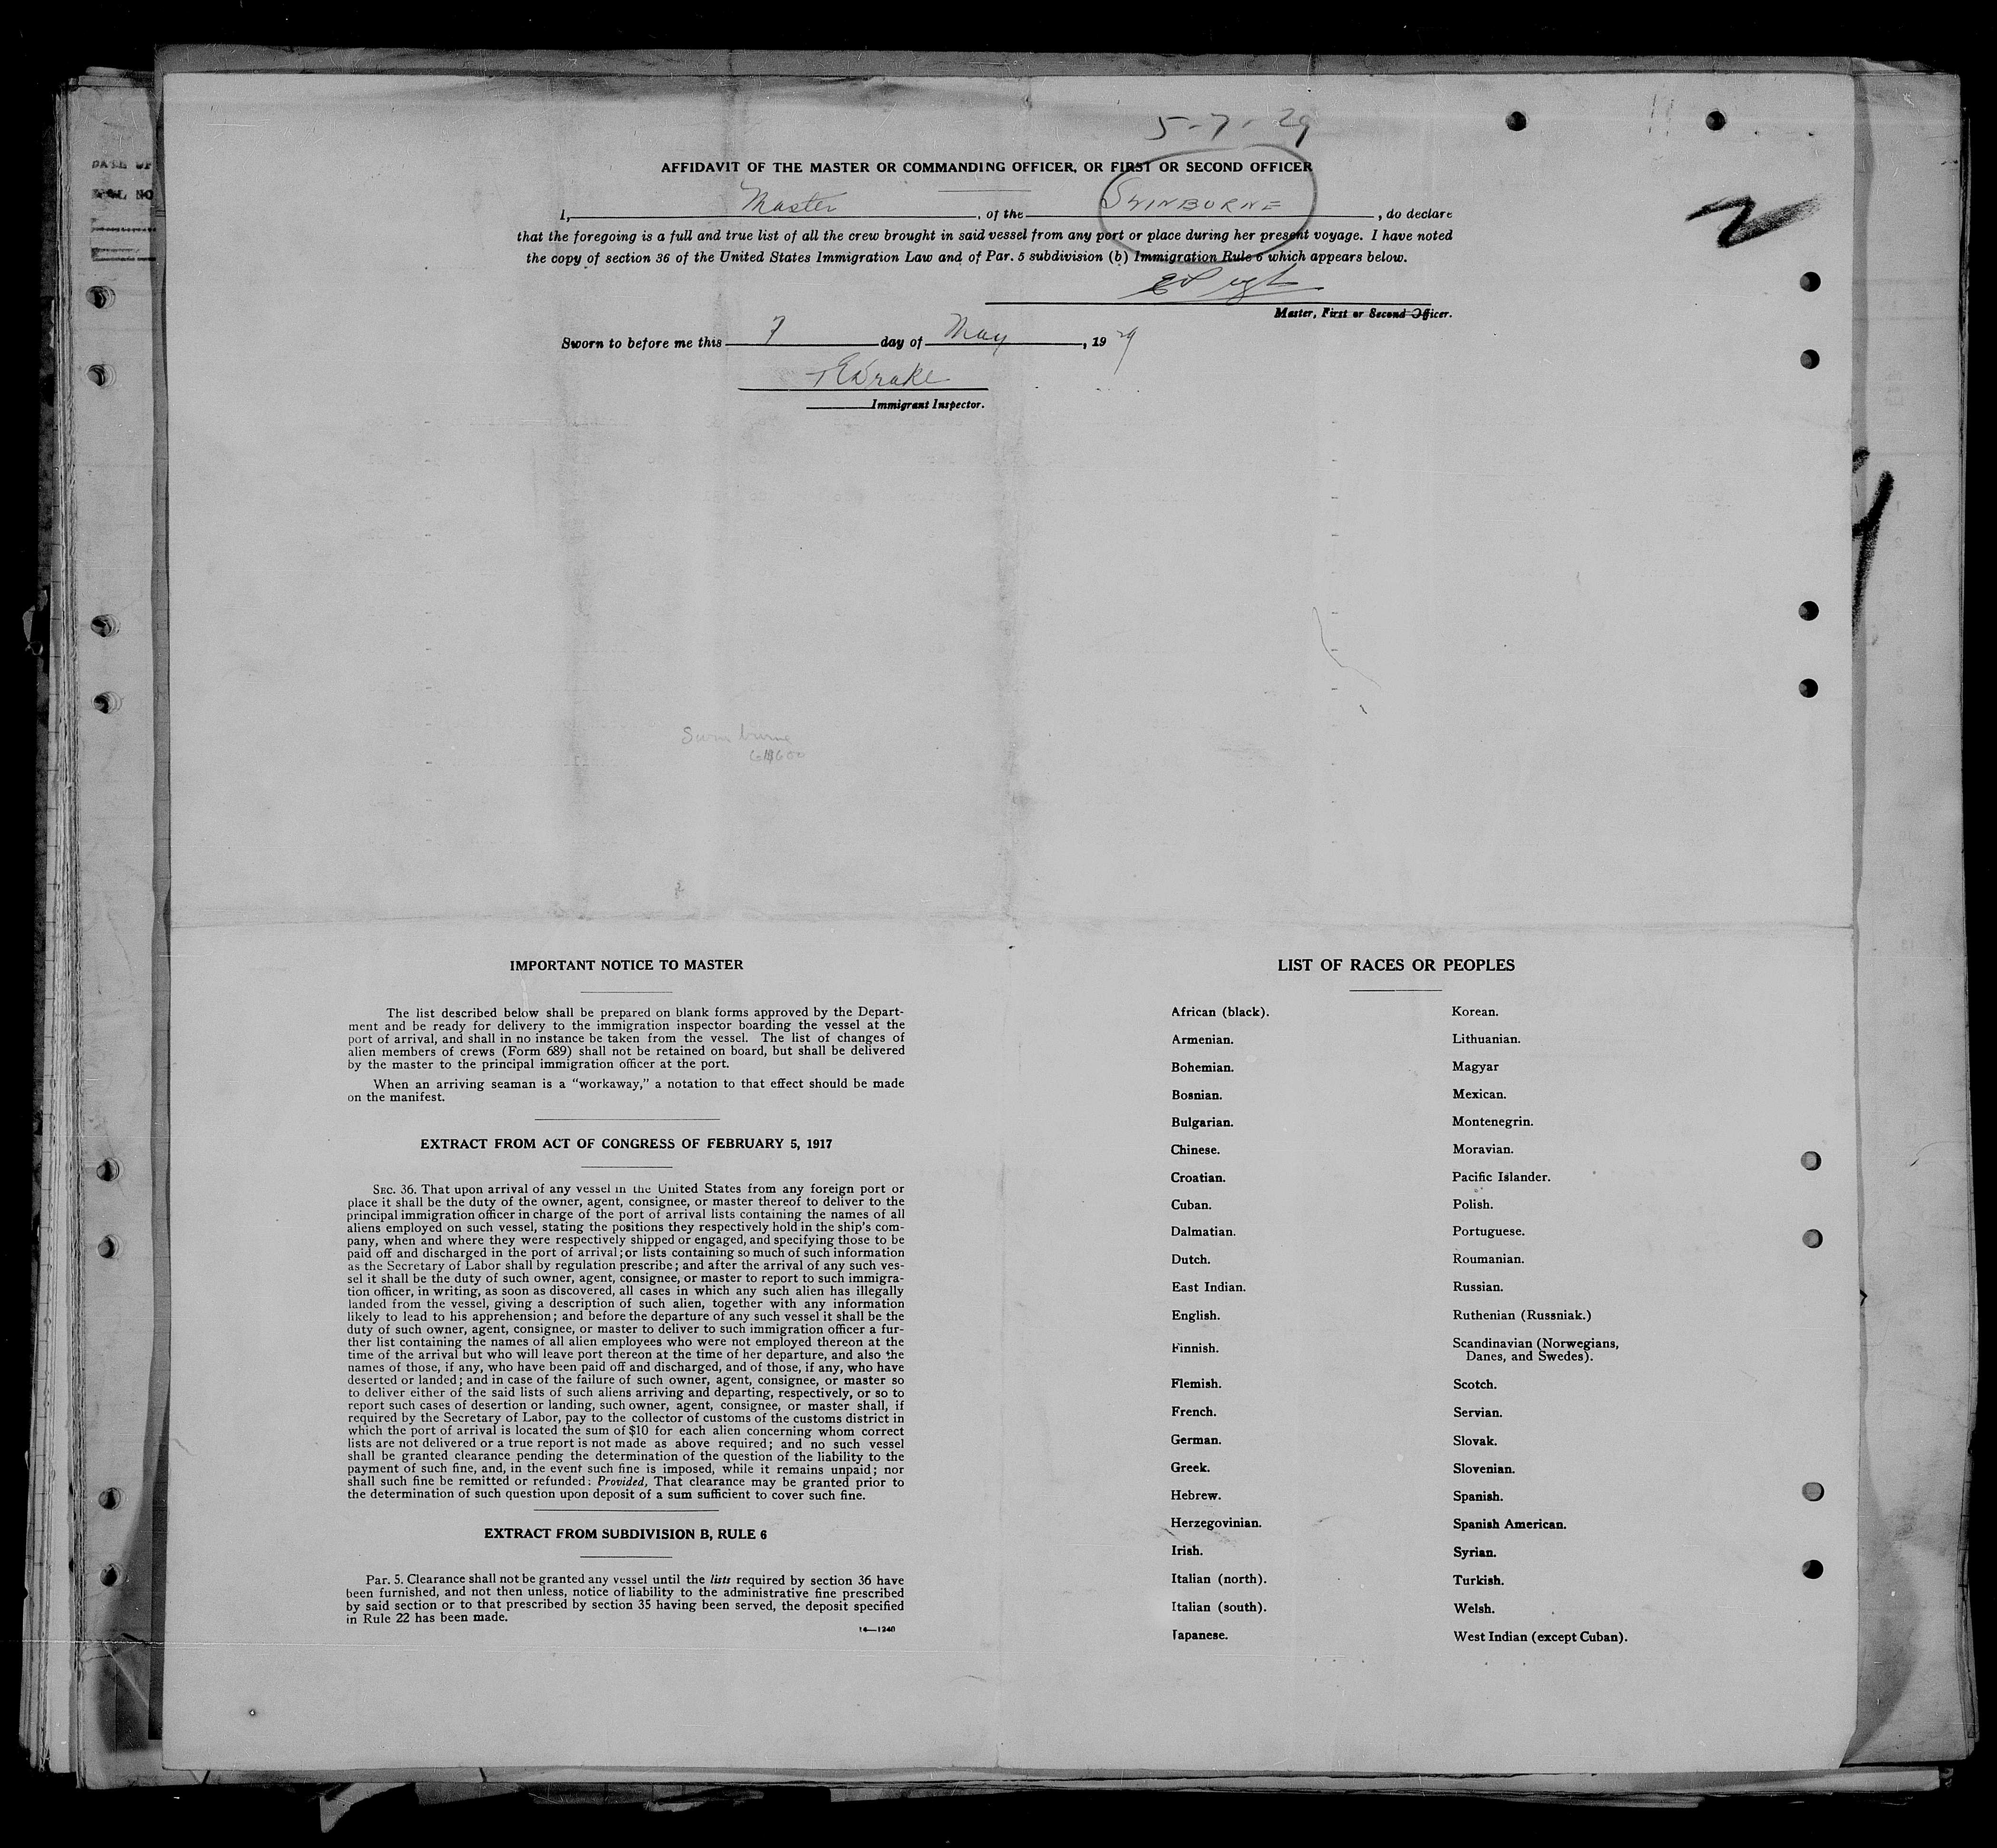 5-7-29
AFFIDAVIT OF THE MASTER OR COMMANDING OFFICER, OR FIRST OR SECOND OFFICER
I, Master, of the SWINBURNE, do declare
that the foregoing is a full and true list of all the crew brought in said vessel from any port or place during her present voyage. I have noted
the copy of section 36 of the United States Immigration Law and of Par. 5 subdivision (b) Immigration Rule 6 which appears below.
Master, First or Second Officer.
Sworn to before me this 7 day of May, 1929
Drake
Immigrant Inspector.
2
DATE OF
IMPORTANT NOTICE TO MASTER
The list described below shall be prepared on blank forms approved by the Depart-
ment and be ready for delivery to the immigration inspector boarding the vessel at the
port of arrival, and shall in no instance be taken from the vessel. The list of changes of
alien members of crews (Form 689) shall not be retained on board, but shall be delivered
by the master to the principal immigration officer at the port.
When an arriving seaman is a "workaway," a notation to that effect should be made
on the manifest.
EXTRACT FROM ACT OF CONGRESS OF FEBRUARY 5, 1917
SEC. 36. That upon arrival of any vessel in the United States from any foreign port or
place it shall be the duty of the owner, agent, consignee, or master thereof to deliver to the
principal immigration officer in charge of the port of arrival lists containing the names of all
aliens employed on such vessel, stating the positions they respectively hold in the ship's com-
pany, when and where they were respectively shipped or engaged, and specifying those to be
paid off and discharged in the port of arrival; or lists containing so much of such information
as the Secretary of Labor shall by regulation prescribe; and after the arrival of any such ves-
sel it shall be the duty of such owner, agent, consignee, or master to report to such immigra-
tion officer, in writing, as soon as discovered, all cases in which any such alien has illegally
landed from the vessel, giving a description of such alien, together with any information
likely to lead to his apprehension; and before the departure of any such vessel it shall be the
duty of such owner, agent, consignee, or master to deliver to such immigration officer a fur-
ther list containing the names of all alien employees who were not employed thereon at the
time of the arrival but who will leave port thereon at the time of her departure, and also the
names of those, if any, who have been paid off and discharged, and of those, if any, who have
deserted or landed; and in case of the failure of such owner, agent, consignee, or master so
to deliver either of the said lists of such aliens arriving and departing, respectively, or so to
report such cases of desertion or landing, such owner, agent, consignee, or master shall, if
required by the Secretary of Labor, pay to the collector of customs of the customs district in
which the port of arrival is located the sum of $10 for each alien concerning whom correct
lists are not delivered or a true report is not made as above required; and no such vessel
shall be granted clearance pending the determination of the question of the liability to the
payment of such fine, and, in the event such fine is imposed, while it remains unpaid; nor
shall such fine be remitted or refunded: Provided, That clearance may be granted prior to
the determination of such question upon deposit of a sum sufficient to cover such fine.
EXTRACT FROM SUBDIVISION B, RULE 6
Par. 5. Clearance shall not be granted any vessel until the lists required by section 36 have
been furnished, and not then unless, notice of liability to the administrative fine prescribed
by said section or to that prescribed by section 35 having been served, the deposit specified
in Rule 22 has been made.
14—1240
LIST OF RACES OR PEOPLES
African (black).
Armenian.
Bohemian.
Bosnian.
Bulgarian.
Chinese.
Croatian.
Cuban.
Dalmatian.
Dutch.
East Indian.
English.
Finnish.
Flemish.
French.
German.
Greek.
Hebrew.
Herzegovinian.
Irish.
Italian (north).
Italian (south).
Japanese.
Korean.
Lithuanian.
Magyar
Mexican.
Montenegrin.
Moravian.
Pacific Islander.
Polish.
Portuguese.
Roumanian.
Russian.
Ruthenian (Russniak.)
Scandinavian (Norwegians,
Danes, and Swedes).
Scotch.
Servian.
Slovak.
Slovenian.
Spanish.
Spanish American.
Syrian.
Turkish.
Welsh.
West Indian (except Cuban).